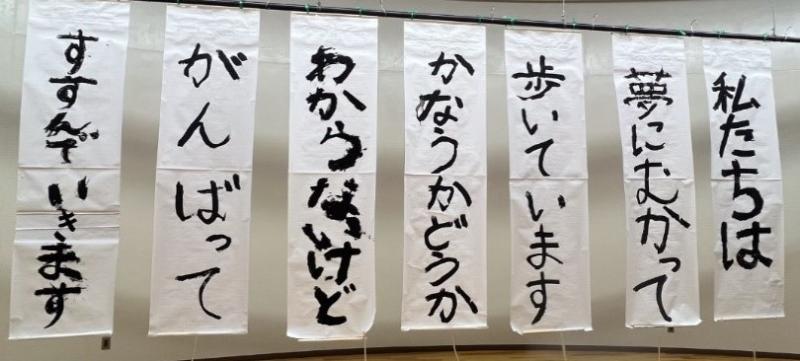 私たちは
夢にむかって
歩いています
かなうかどうか
わからないけど
がんばって
すすんでいきます